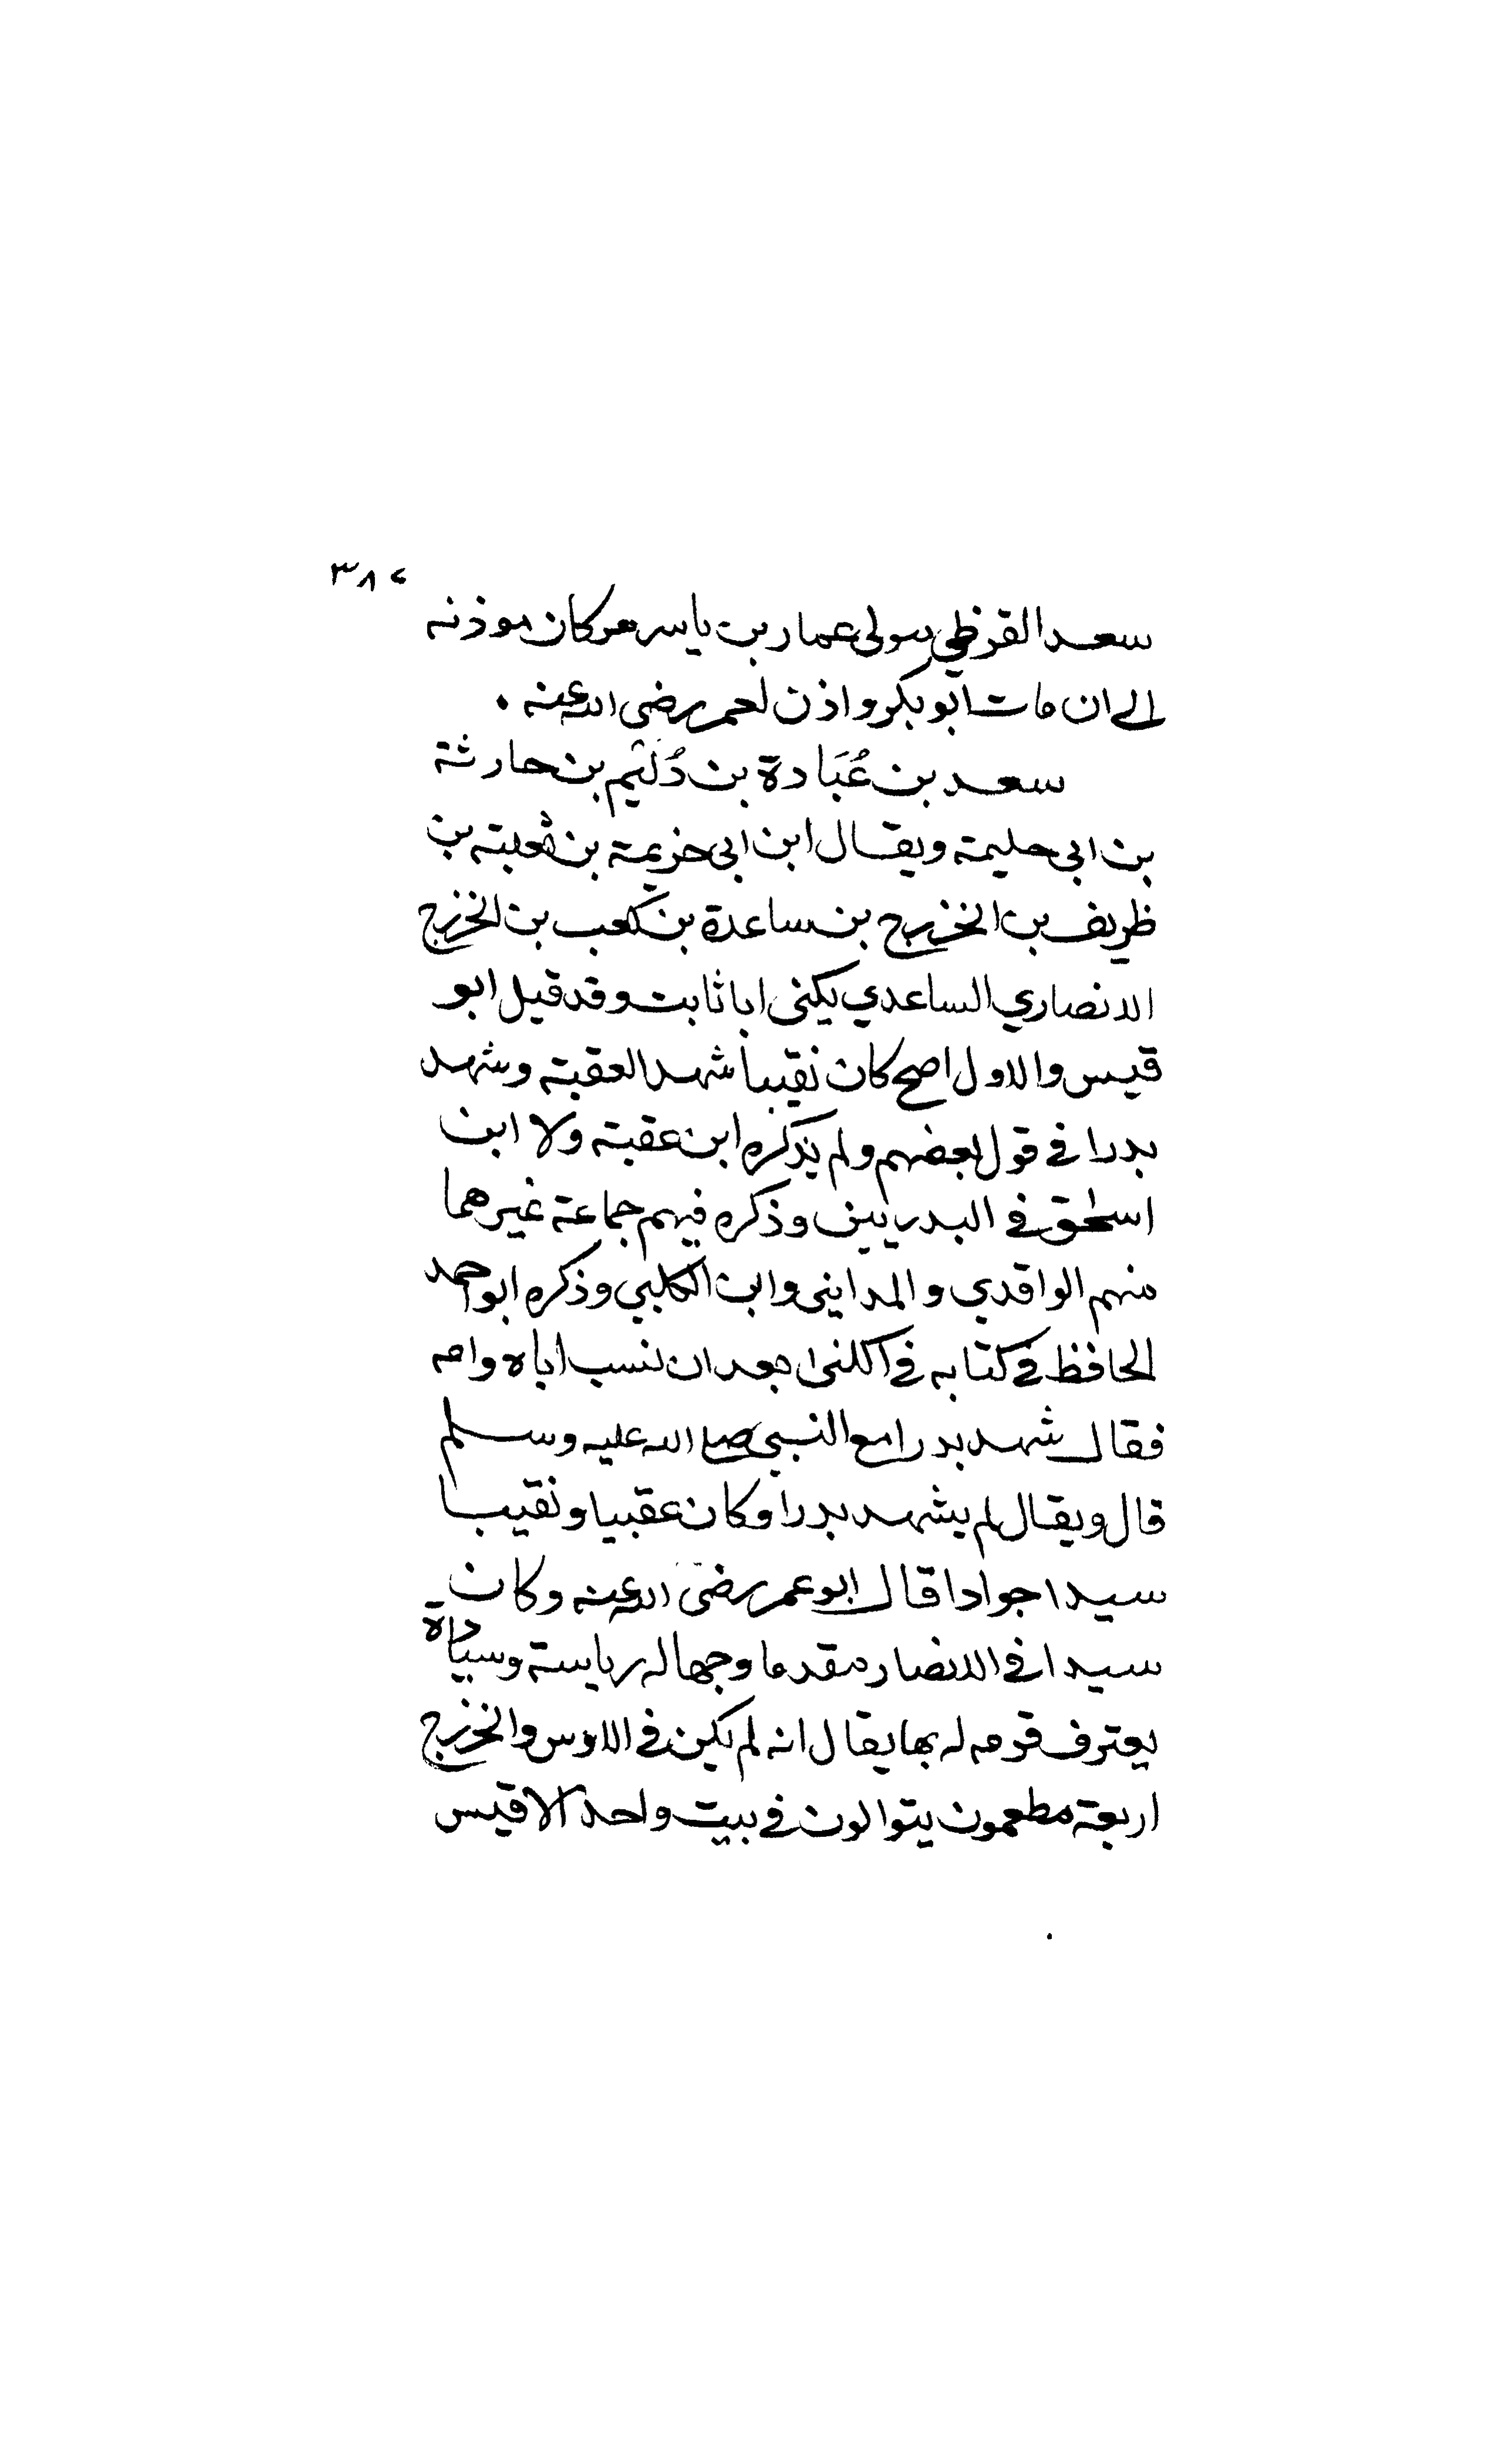 ٣٨٤
سعد القرظي مولى عمار بن ياسر كان موذنه
الى ان مات ابو بكر واذن لعمر رضى الله عنه .
سعد بن عُبَادة بن دُلَيْم بن حارثة
بن ابى حليمة ويقال ابن ابى خزيمة بن ثعلبته بن
ظريف بن الخزرج بن ساعدة بن كعب بن الخزرج
الانصاري الساعدي يكنى ابا ثابت وقد قيل ابو
قيس والاول اصح كان نقيبا شهد العقبته وشهد
بدرا فى قول بعضهم ولم يذكره ابن عقبته ولا ابن
اسحق فى البدريين وذكره فيهم جماعة غيرهما
منهم الواقدي والمداينى وابن الكلبي وذكره ابو احمد
الحافظ فى كتابه فى الكنى بعد ان نسب اباه وامه
فقال شهد بدرا مع النبي صلى الله عليه وسلم
قال ويقال لم يشهد بدرا وكان عقبيا ونقيبا
سيدا جوادا قال ابو عمر رضى الله عنه وكان
سيدا فى الانصار مقدما وجيها له رياسة وسيادة
يعترف قومه له بها يقال انه لم يكن فى الاوس والخزرج
اربعة مطعمون يتوالون فى بيت واحد الا قيس